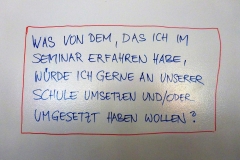 WAS VON DEM, DAS ICH IM
SEMINAR ERFAHREN HABE,
WÜRDE ICH GERNE AN UNSERER
SCHULE UMSETZEN UND/ODER
UMGESETZT HABEN WOLLEN?